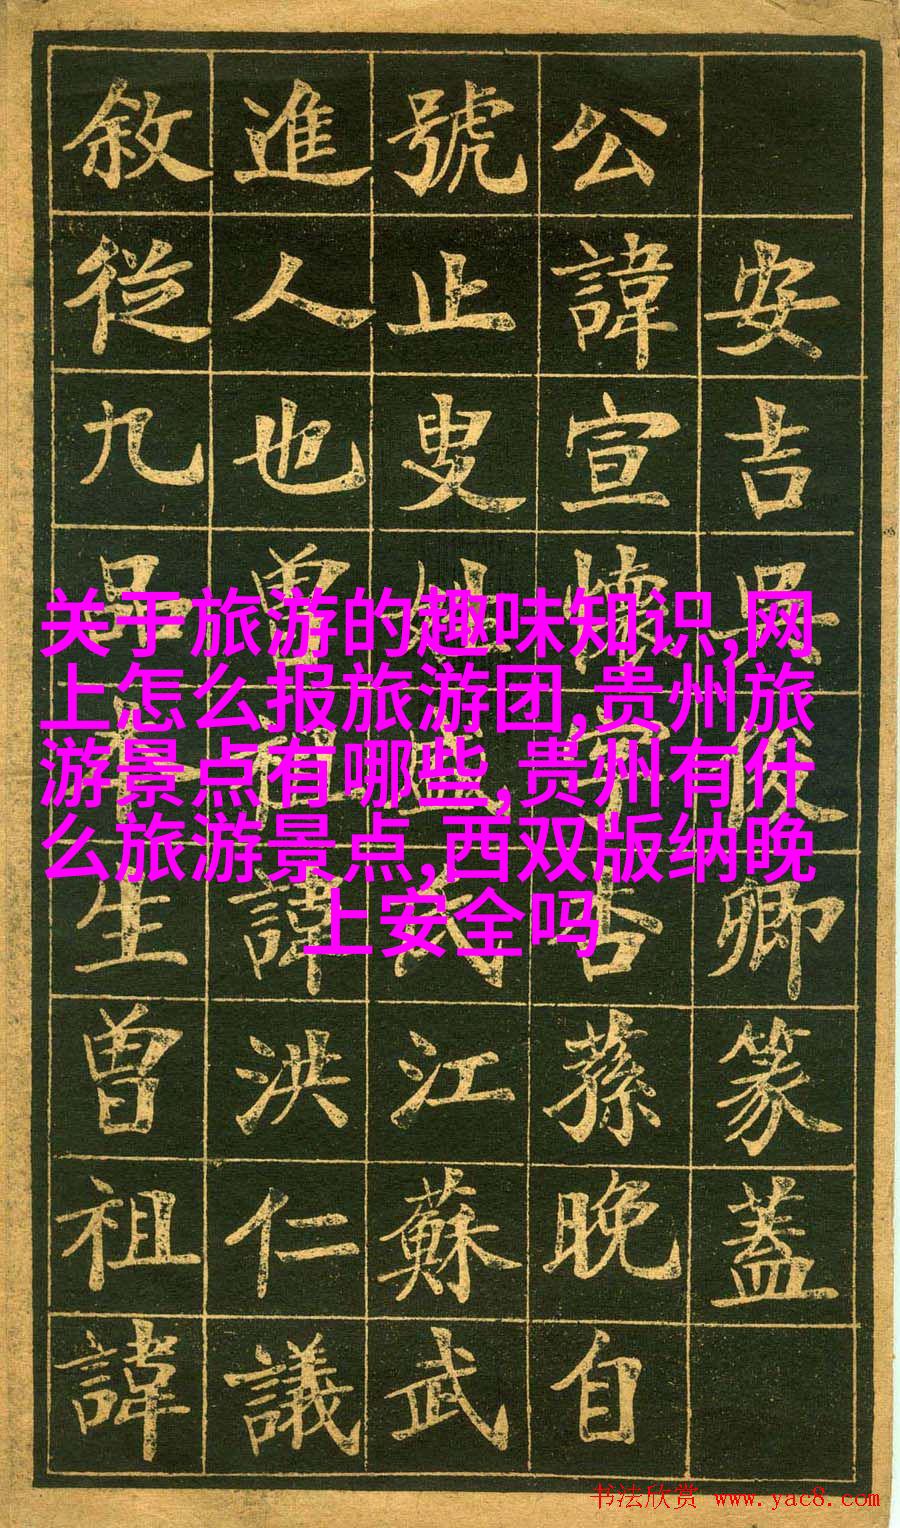 安吉吳俊卿篆蓋
公諱宣懷字杏蓀晚自
號止叟姓盛氏江蘇武
進人也曾祖諱洪仁議
敘從九品本生曾祖諱
关于旅游的趣味知识,网
上怎么报旅游团,贵州旅
游景点有哪些,贵州有什
么旅游景点,西双版纳晚
上安全吗
书法欣赏 www.yac8.com